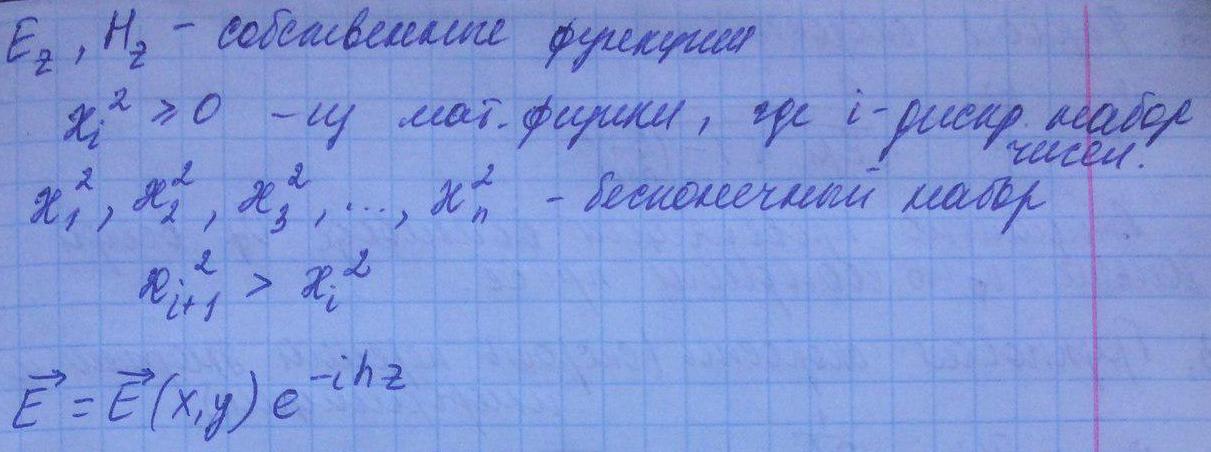 E_z, H_z - собственные функции
ϰ_i² ⩾ 0 - из мат. физики, где i - дискр. набор
чисел.
ϰ₁², ϰ₂², ϰ₃², ..., ϰ_n² - бесконечный набор
ϰ_{i+1}² > ϰ_i²
E⃗ = E⃗(x,y) e^{-ihz}